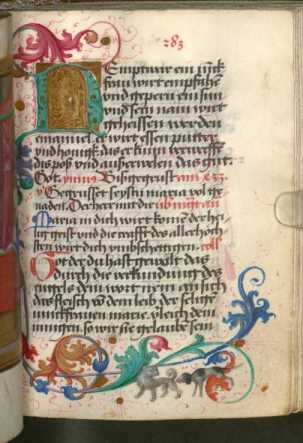 283
Nemptwir ein junck
fraw wirt empfahen
vnd gepern ein sun
vnd sein nam wirt
geheissen werden
emanuel. er wirt essen putter
vnd honigk. das er kunn verwerffen
das poß vnd außerweln das gut.
Got.
Gegrusset seystu maria vol ge
naden. Der herr mit dir
Maria in dich wirt komen der hei
lig geist vnd die krafft des allerhoch
sten wirt dich vmbschettigen. coll
Got der du hast gewolt das
durch die verkundung des
engels dein wort nem an sich
das fleisch von dem leib der selige
iunckfrauen marie. verleich dem
so wir sie gelauben sein